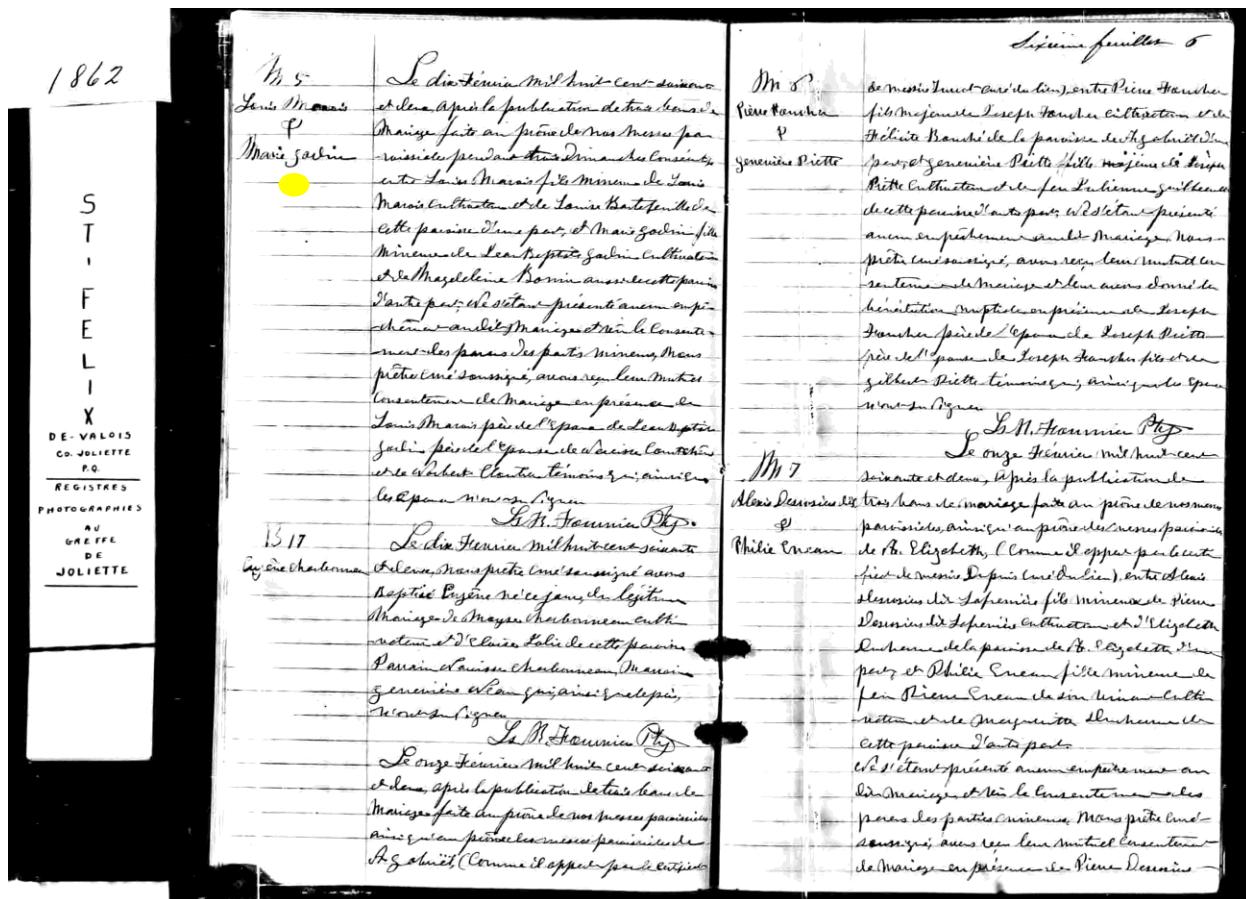 1862
ST' FELIX
DE-VALOIS
CO. JOLIETTE
P.Q.
REGISTRES
PHOTOGRAPHIES
AU
GREFFE
DE
JOLIETTE
M 5
Louis Marois
&
Marie Godin
Le dix Février mil huit cent soixante
et deux, après la publication de trois bans de
Mariage faite au prône de nos messes pa-
roissiales pendant trois Dimanches consécutifs
entre Louis Marois fils mineur de Louis
Marois Cultivateur et de Louise
cette paroisse d'une part, et Marie Godin fille
mineure de Jean Baptiste Godin Cultivateur
et de Magdeleine Bonin aussi de cette paroisse
d'autre part, Ne s'étant présenté aucun empê-
chement au dit Mariage et vu le Consente-
ment des parens des partis mineurs, Nous
prêtre curé soussigné, avons reçu leur mutuel
Consentement de Mariage en présence de
Louis Marois père de l'Epoux de Jean Baptiste
Godin père de l'Epouse de Narcisse
et de Norbert Cloutier témoins qui, ainsi que
les Epoux n'ont su signer
Ls N. Fournier Ptre
B 17
Eugène Charbonneau
Le dix Février mil huit cent soixante
et deux, Nous prêtre curé soussigné avons
Baptisé Eugène né ce jour, du légitime
Mariage de Moyse Charbonneau culti-
vateur et d' de cette paroisse
Parrain Charbonneau, Marraine
Geneviève qui, ainsi que le père,
n'ont su signer
Ls N. Fournier Ptre
Le onze Février mil huit cent soixante
et deux, après la publication de trois bans de
Mariage faite au prône de nos messes paroissiales
ainsi qu'au prône des messes paroissiales de
St Gabriel, (Comme il appert par le certificat
Sixième feuillet 6
M 6
Pierre Faucher
&
Geneviève Piette
de messire curé du lieu), entre Pierre Faucher
fils majeur de Joseph Faucher Cultivateur et de
Félicité de la paroisse de St Gabriel d'une
part, et Geneviève Piette fille majeure de Joseph
Piette Cultivateur et de feu Julienne
de cette paroisse d'autre part, Ne s'étant présenté
aucun empêchement au dit Mariage, Nous
prêtre curé soussigné, avons reçu leur mutuel con
sentement de Mariage et leur avons donné la
bénédiction nuptiale en présence de Joseph
Faucher père de l'Epoux de Joseph Piette
père de l'Epouse de Joseph Faucher fils et de
Gilbert Piette témoins qui, ainsi que les Epoux
n'ont su signer
Ls N. Fournier Ptre
M 7
Alexis Desrosiers dit
&
Philie Eneau
Le onze Février mil huit cent
soixante et deux, après la publication de
trois bans de mariage faite au prône de nos messes
paroissiales, ainsi qu'au prône des messes paroissiales
de St. Elizabeth, (Comme il appert par le certi
ficat de messire Dupuis curé du lieu), entre Alexis
Desrosiers dit Laferrière fils mineur de Pierre
Desrosiers dit Laferrière Cultivateur et d'Elizabeth
Ducharme de la paroisse de St. Elizabeth d'une
part, et Philie Eneau fille mineure de
feu Pierre Eneau de son vivant Culti
vateur et de Marguerite Ducharme de
cette paroisse d'autre part
Ne s'étant présenté aucun empêchement au
dit Mariage et vu le Consentement des
parens des parties mineures, Nous prêtre curé
soussigné, avons reçu leur mutuel Consentement
de Mariage en présence de Pierre Desrosiers